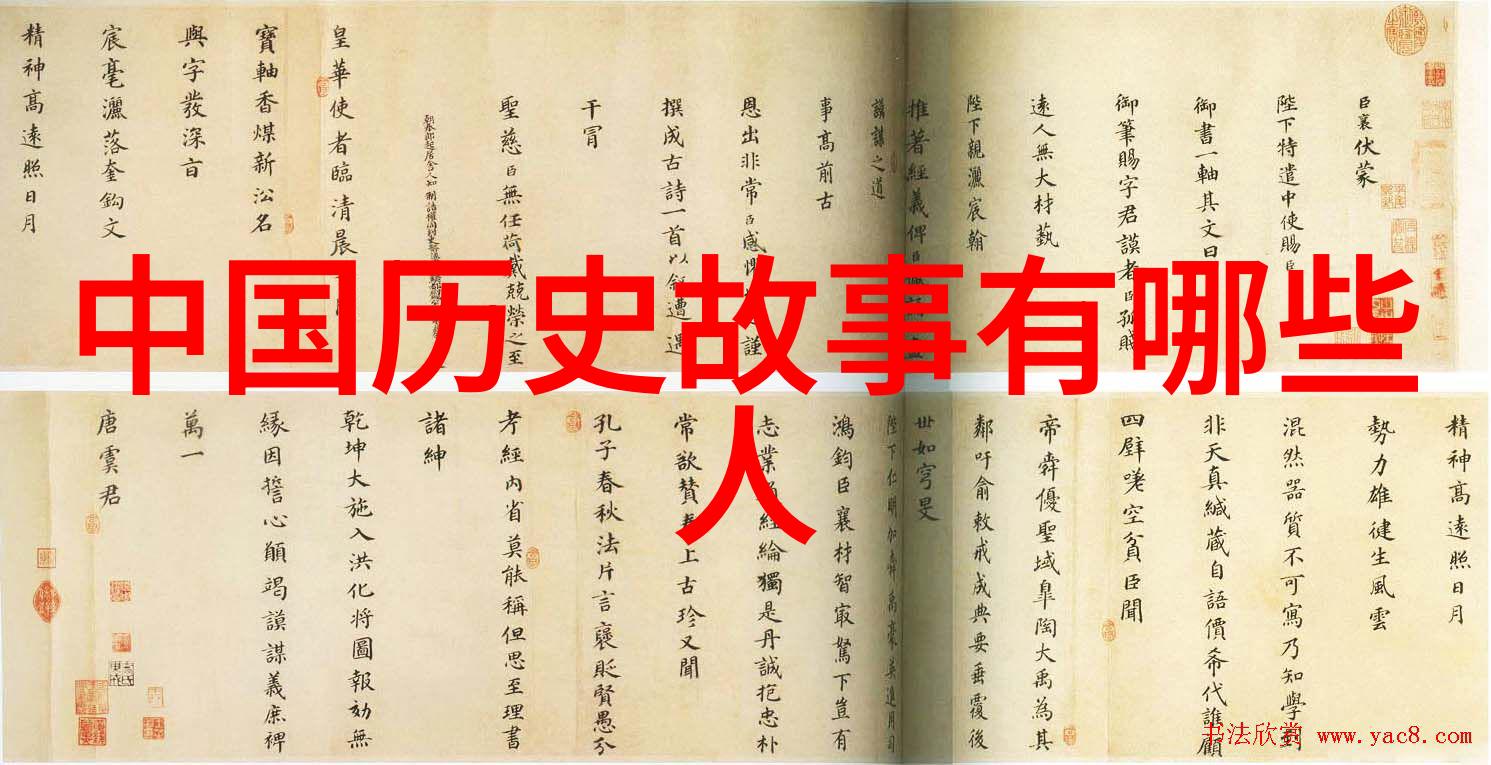 中国历史故事有哪些
人
臣襄伏蒙
陛下特遣中使賜臣
御書一軸其文曰
御筆賜字君謨者臣孤賤
遠人無大材藝
陛下親灑宸翰
推著經義俾臣
謨謀之道
事高前古
恩出非常臣感懼 謹
撰成古詩一首以敘遭遇
干冒
聖慈臣無任荷戴兢榮之至
朝奉郎起居舍人知制誥權同判吏部
皇華使者臨清晨
寶軸香煤新沿名
與字發深旨
宸毫灑落奎鉤文
精神高遠照日月
精神高遠照日月
勢力雄健生風雲
混然器質不可寫乃知學到
非天真緘藏自語價希代誰顧
四壁嗟空貧臣聞
帝舜優聖域皐陶大禹為其
鄰吁俞敕戒成典要垂覆後
世如穹旻
陛下仁明加舜禹豪英進用司
鴻鈞臣襄材智最駑下豈有
志業通經綸獨是丹誠抱忠朴
常欲贊奏上古珍又聞
孔子春秋法片言褒貶賢愚分
考經內省莫能稱但思至理書
諸紳
乾坤大施入洪化將圖報効無
緣因誓心願竭謨謀義庶裨
萬一
唐虞君
书法欣赏 www.yac8.com